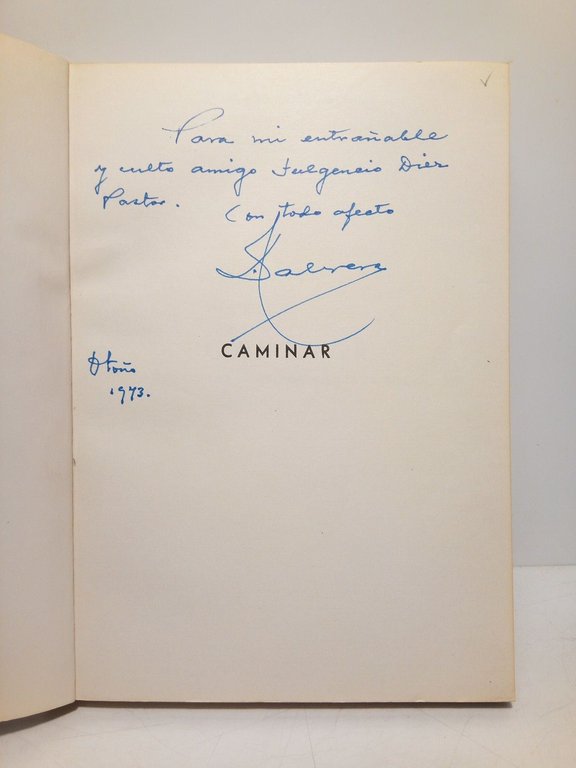 Para mi entrañable
y culto amigo Fulgencio Diez
Pastor. Con todo afecto
CAMINAR
Otoño
1973.